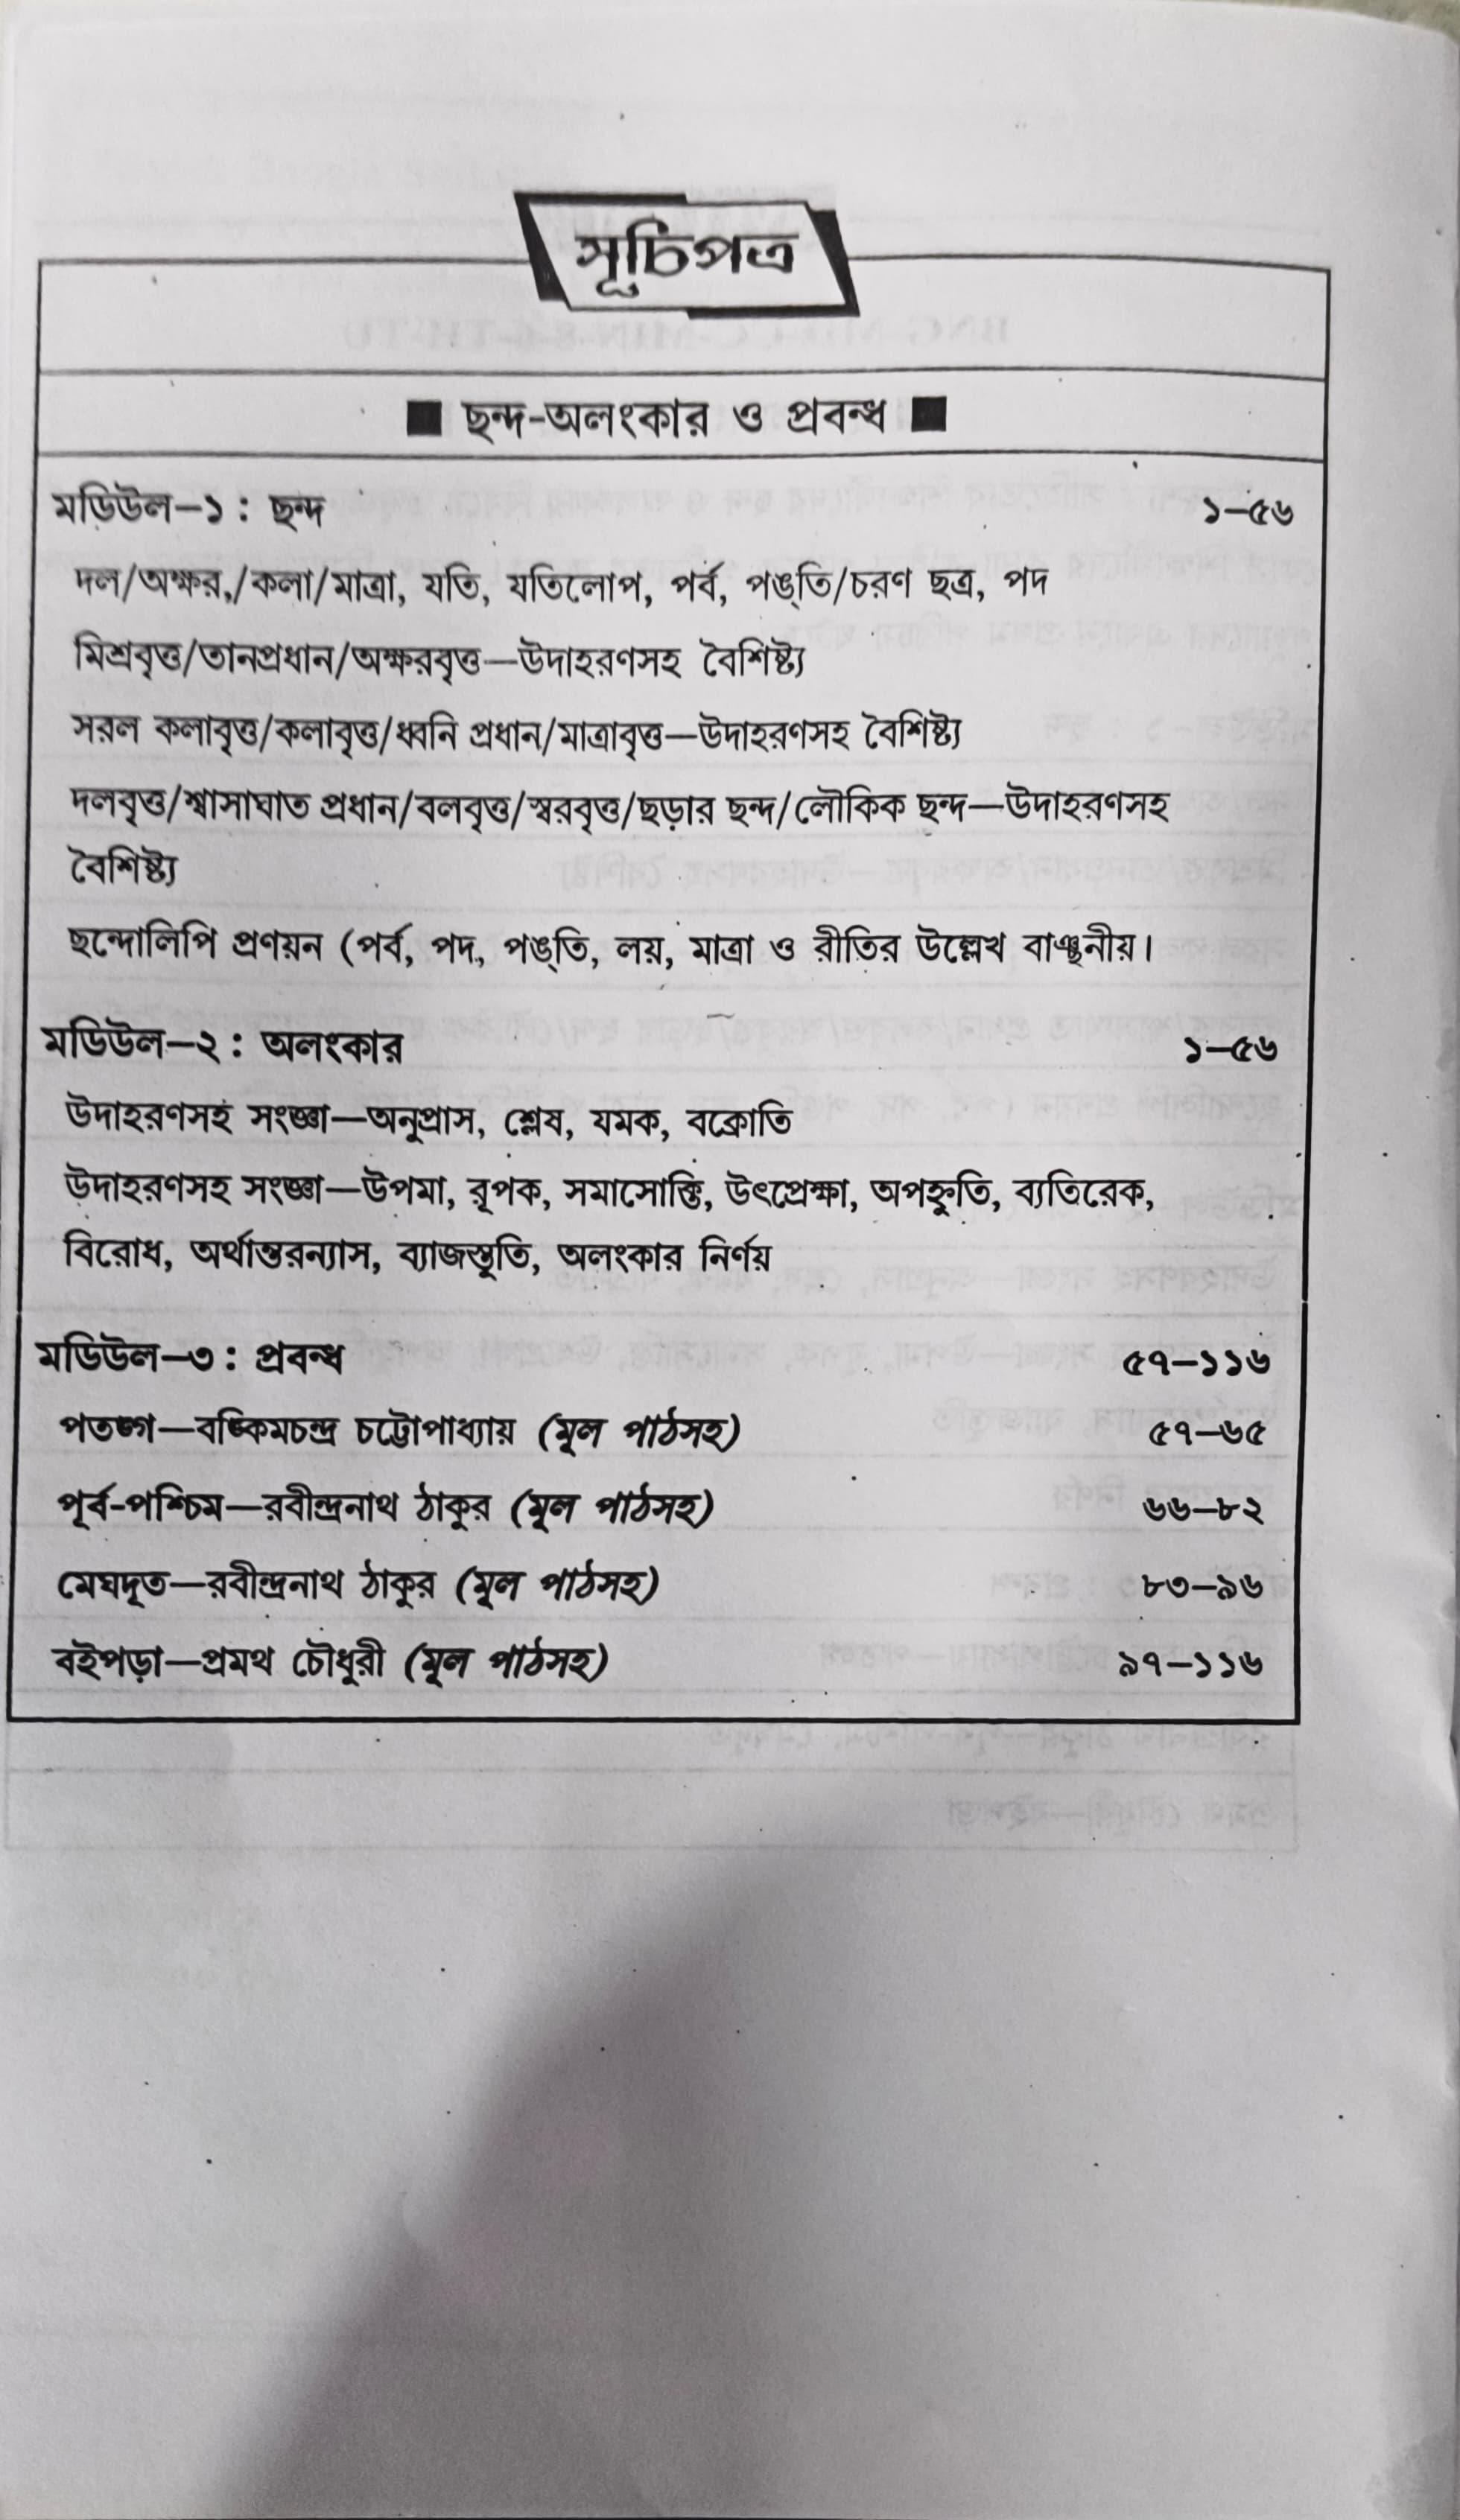 সূচিপত্র
■ ছন্দ-অলংকার ও প্রবন্ধ ■
মডিউল–১ : ছন্দ ১–৫৬
দল/অক্ষর,/কলা/মাত্রা, যতি, যতিলোপ, পর্ব, পঙ্‌তি/চরণ ছত্র, পদ
মিশ্রবৃত্ত/তানপ্রধান/অক্ষরবৃত্ত—উদাহরণসহ বৈশিষ্ট্য
সরল কলাবৃত্ত/কলাবৃত্ত/ধ্বনি প্রধান/মাত্রাবৃত্ত—উদাহরণসহ বৈশিষ্ট্য
দলবৃত্ত/শ্বাসাঘাত প্রধান/বলবৃত্ত/স্বরবৃত্ত/ছড়ার ছন্দ/লৌকিক ছন্দ—উদাহরণসহ
বৈশিষ্ট্য
ছন্দোলিপি প্রণয়ন (পর্ব, পদ, পঙ্‌তি, লয়, মাত্রা ও রীতির উল্লেখ বাঞ্ছনীয়।
মডিউল–২ : অলংকার ১–৫৬
উদাহরণসহ সংজ্ঞা—অনুপ্রাস, শ্লেষ, যমক, বক্রোতি
উদাহরণসহ সংজ্ঞা—উপমা, রূপক, সমাসোক্তি, উৎপ্রেক্ষা, অপহ্নুতি, ব্যতিরেক,
বিরোধ, অর্থান্তরন্যাস, ব্যাজস্তুতি, অলংকার নির্ণয়
মডিউল–৩ : প্রবন্ধ ৫৭–১১৬
পতঙ্গ—বঙ্কিমচন্দ্র চট্টোপাধ্যায় (মূল পাঠসহ) ৫৭–৬৫
পূর্ব-পশ্চিম—রবীন্দ্রনাথ ঠাকুর (মূল পাঠসহ) ৬৬–৮২
মেঘদূত—রবীন্দ্রনাথ ঠাকুর (মূল পাঠসহ) ৮৩–৯৬
বইপড়া—প্রমথ চৌধুরী (মূল পাঠসহ) ৯৭–১১৬